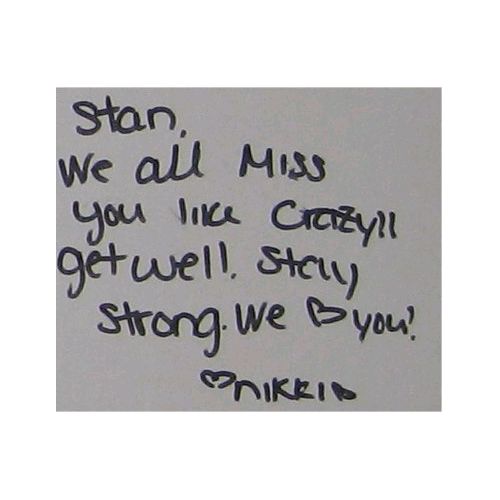 Stan,
We all Miss
you like Crazy!!
get well. Stay
Strong. We ♡ you!
♡ NIKKI